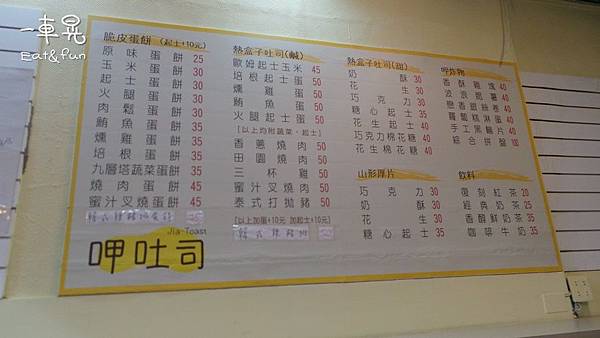 一車晃
Eat&fun
脆皮蛋餅 (起士+10元)
原味蛋餅 25
玉米蛋餅 30
起士蛋餅 30
火腿蛋餅 30
肉鬆蛋餅 30
鮪魚蛋餅 35
燻雞蛋餅 35
培根蛋餅 35
九層塔蔬菜蛋餅 35
燒肉蛋餅 45
蜜汁叉燒蛋餅 45
Jia-Toast
呷吐司
熱盒子吐司(鹹)
歐姆起士玉米 45
培根起士蛋 50
燻雞蛋 50
鮪魚蛋 50
火腿起士蛋 50
[以上均附蔬菜、起士]
香蔥燒肉 50
田園燒肉 50
三杯雞 50
蜜汁叉燒肉 50
泰式打拋豬 50
[以上加蛋+10元 加起士+10元]
熱盒子吐司(甜)
奶酥 30
花生 30
巧克力 30
糖心起士 35
花生起士 40
巧克力棉花糖 40
花生棉花糖 40
山形厚片
巧克力 30
奶酥 30
花生 30
糖心起士 35
呷炸物
香酥雞塊 40
波浪脆薯 40
戀香甜絲卷 40
蘿蔔糕淋蛋 40
手工黑輪片 40
綜合拼盤 100
飲料
復刻紅茶 20
經典奶茶 25
香醇鮮奶茶 35
咖啡牛奶 35